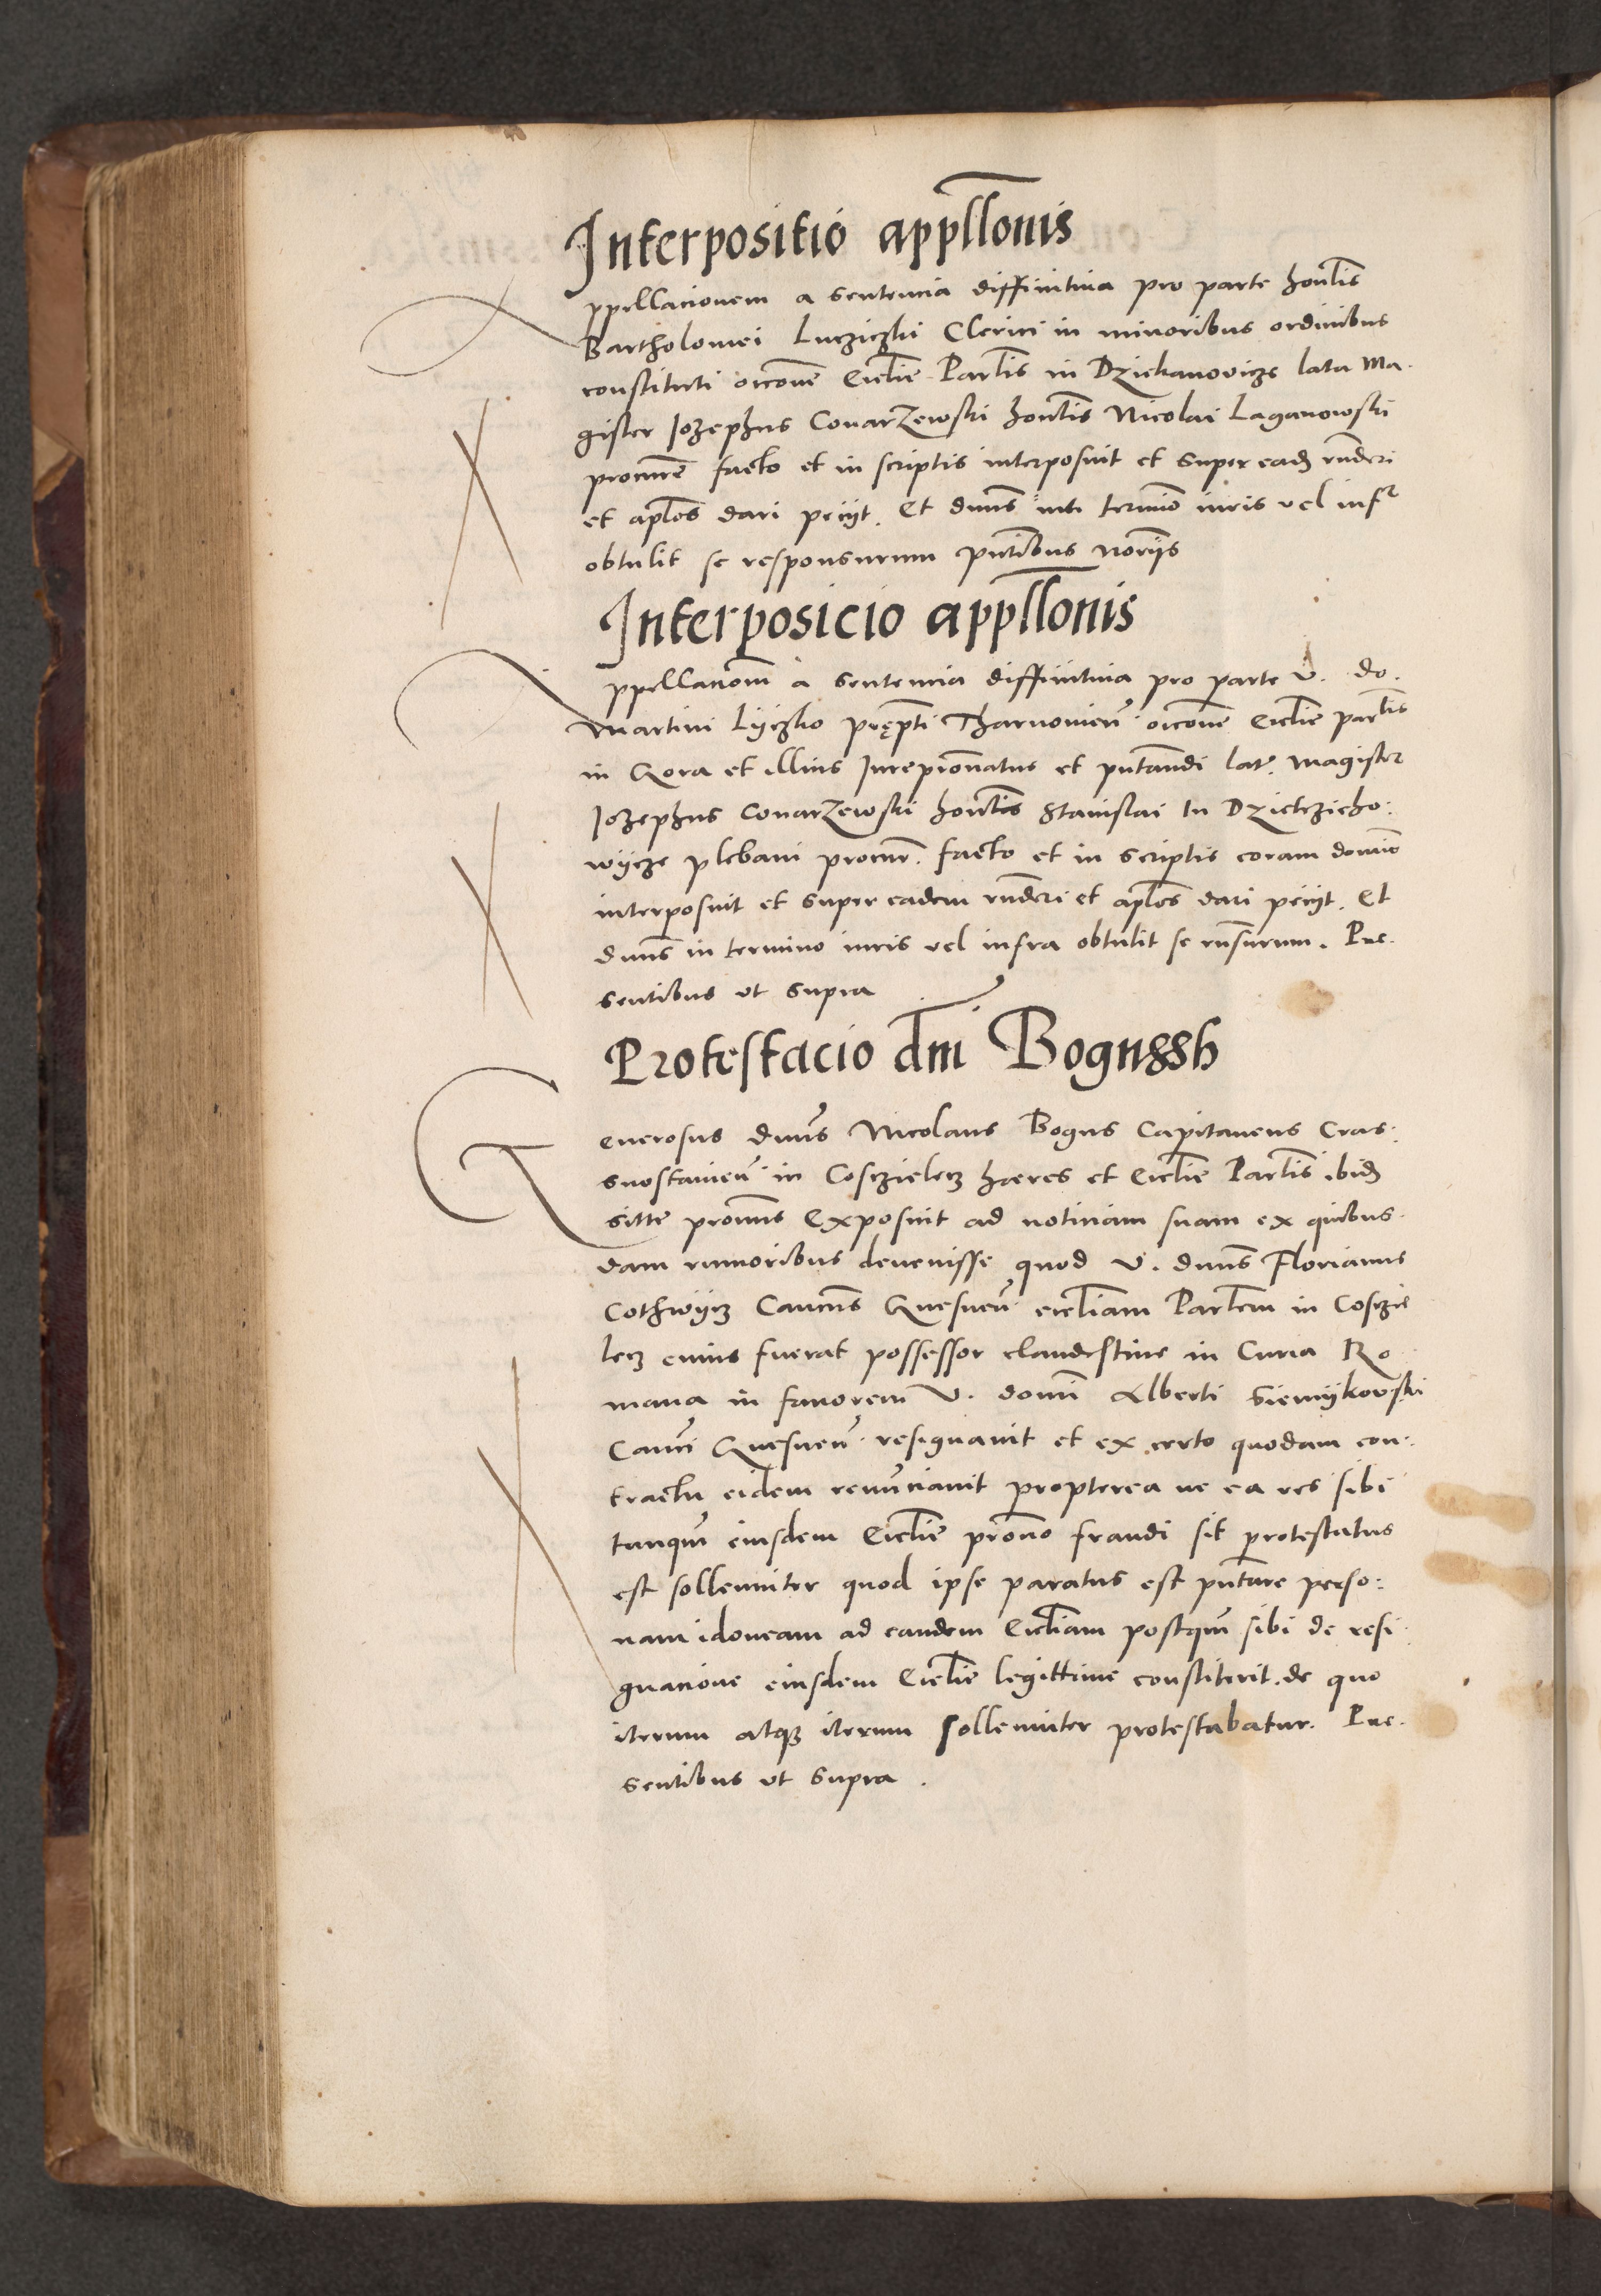 Interpositio appllonis
Appellacionem a sentencia diffinitiva pro parte honlis
Bartholomei Lucziczki Clerici in minoribus ordinibus
constituti occone Ecclie Parlis in Dziekanovicze lata Ma-
gister Jozephus Conarzewski honlis Nicolai Laganowski
procurre facto et in scriptis interposuit et super eadz rnderi
et aplos dari peciit. Et dnns in termino iuris vel infr
obtulit se responsurum pntibus noriis
Interposicio appllonis
Appellacionem a sentencia diffinitiva pro parte V. do.
Martini Lyczko prepti Tharnovien occone Ecclie parlis
in Gora et illius Jurepronatus et pntandi lat. Magister
Jozephus Conarzewski honlis Stanislai In Dzietrzicho-
wycze plebani procur. facto et in scriptis coram domino
interposuit et super eadem rnderi et aplos dari peciit. Et
dnns in termino iuris vel infra obtulit se rnsurum. Pre-
sentibus ut supra
Protestacio dni Bogussh
Generosus dnns Nicolaus Bogus Capitaneus Cras-
snostavien in Cosczielecz hæres et Ecclie Parlis ibidz
sitte pronus Exposuit ad noticiam suam ex quibus-
dam rumoribus devenisse quod V. dnns Florianus
Cothwycz Cancus Gnesnen eccliam Parlem in Cosczie
lecz cuius fuerat possessor clandestine in Curia Ro
mana in favorem V. domi Alberti Siemykowski
Canci Gnesnen resignavit et ex certo quodam con-
tractu eidem renunciavit propterea ne ea res sibi
tanqum eiusdem Ecclie prono fraudi sit protestatus
est sollemniter quod ipse paratus est pntare perso-
nam idoneam ad eandem Eccliam postqum sibi de resi
gnacione eiusdem Ecclie legittime constiterit. de quo
iterum atqz iterum sollemniter protestabatur. Pre-
sentibus ut supra.